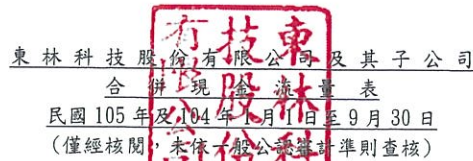 東林科技股份有限公司及其子公司
合併現金流量表
民國 105 年及 104 年 1 月 1 日至 9 月 30 日
(僅經核閱，未依一般公認審計準則查核)
東林科
技股份
有限公